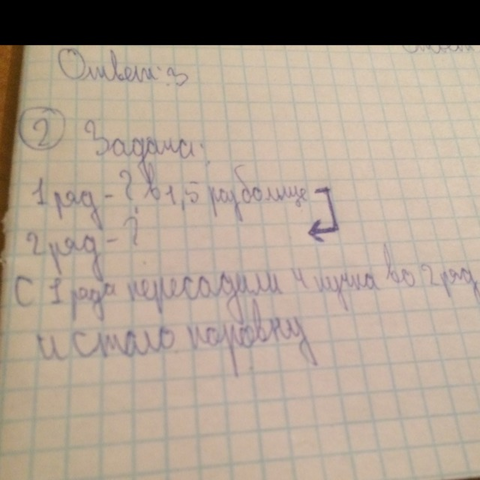 Ответ: 3
2 Задача.
1 ряд - ? в 1,5 раз больше
2 ряд - ?
С 1 ряда пересадили 4 пучка во 2 ряд
и стало поровну